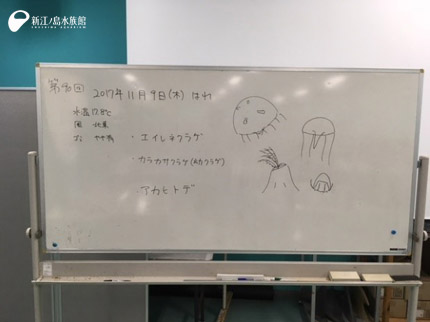 新江ノ島水族館
ENOSHIMA AQUARIUM
第90回 2017年11月9日(木) はれ
水温17.8℃
風 北東
・エイレネクラゲ
・カラカサクラゲ(幼クラゲ)
アカヒトデ